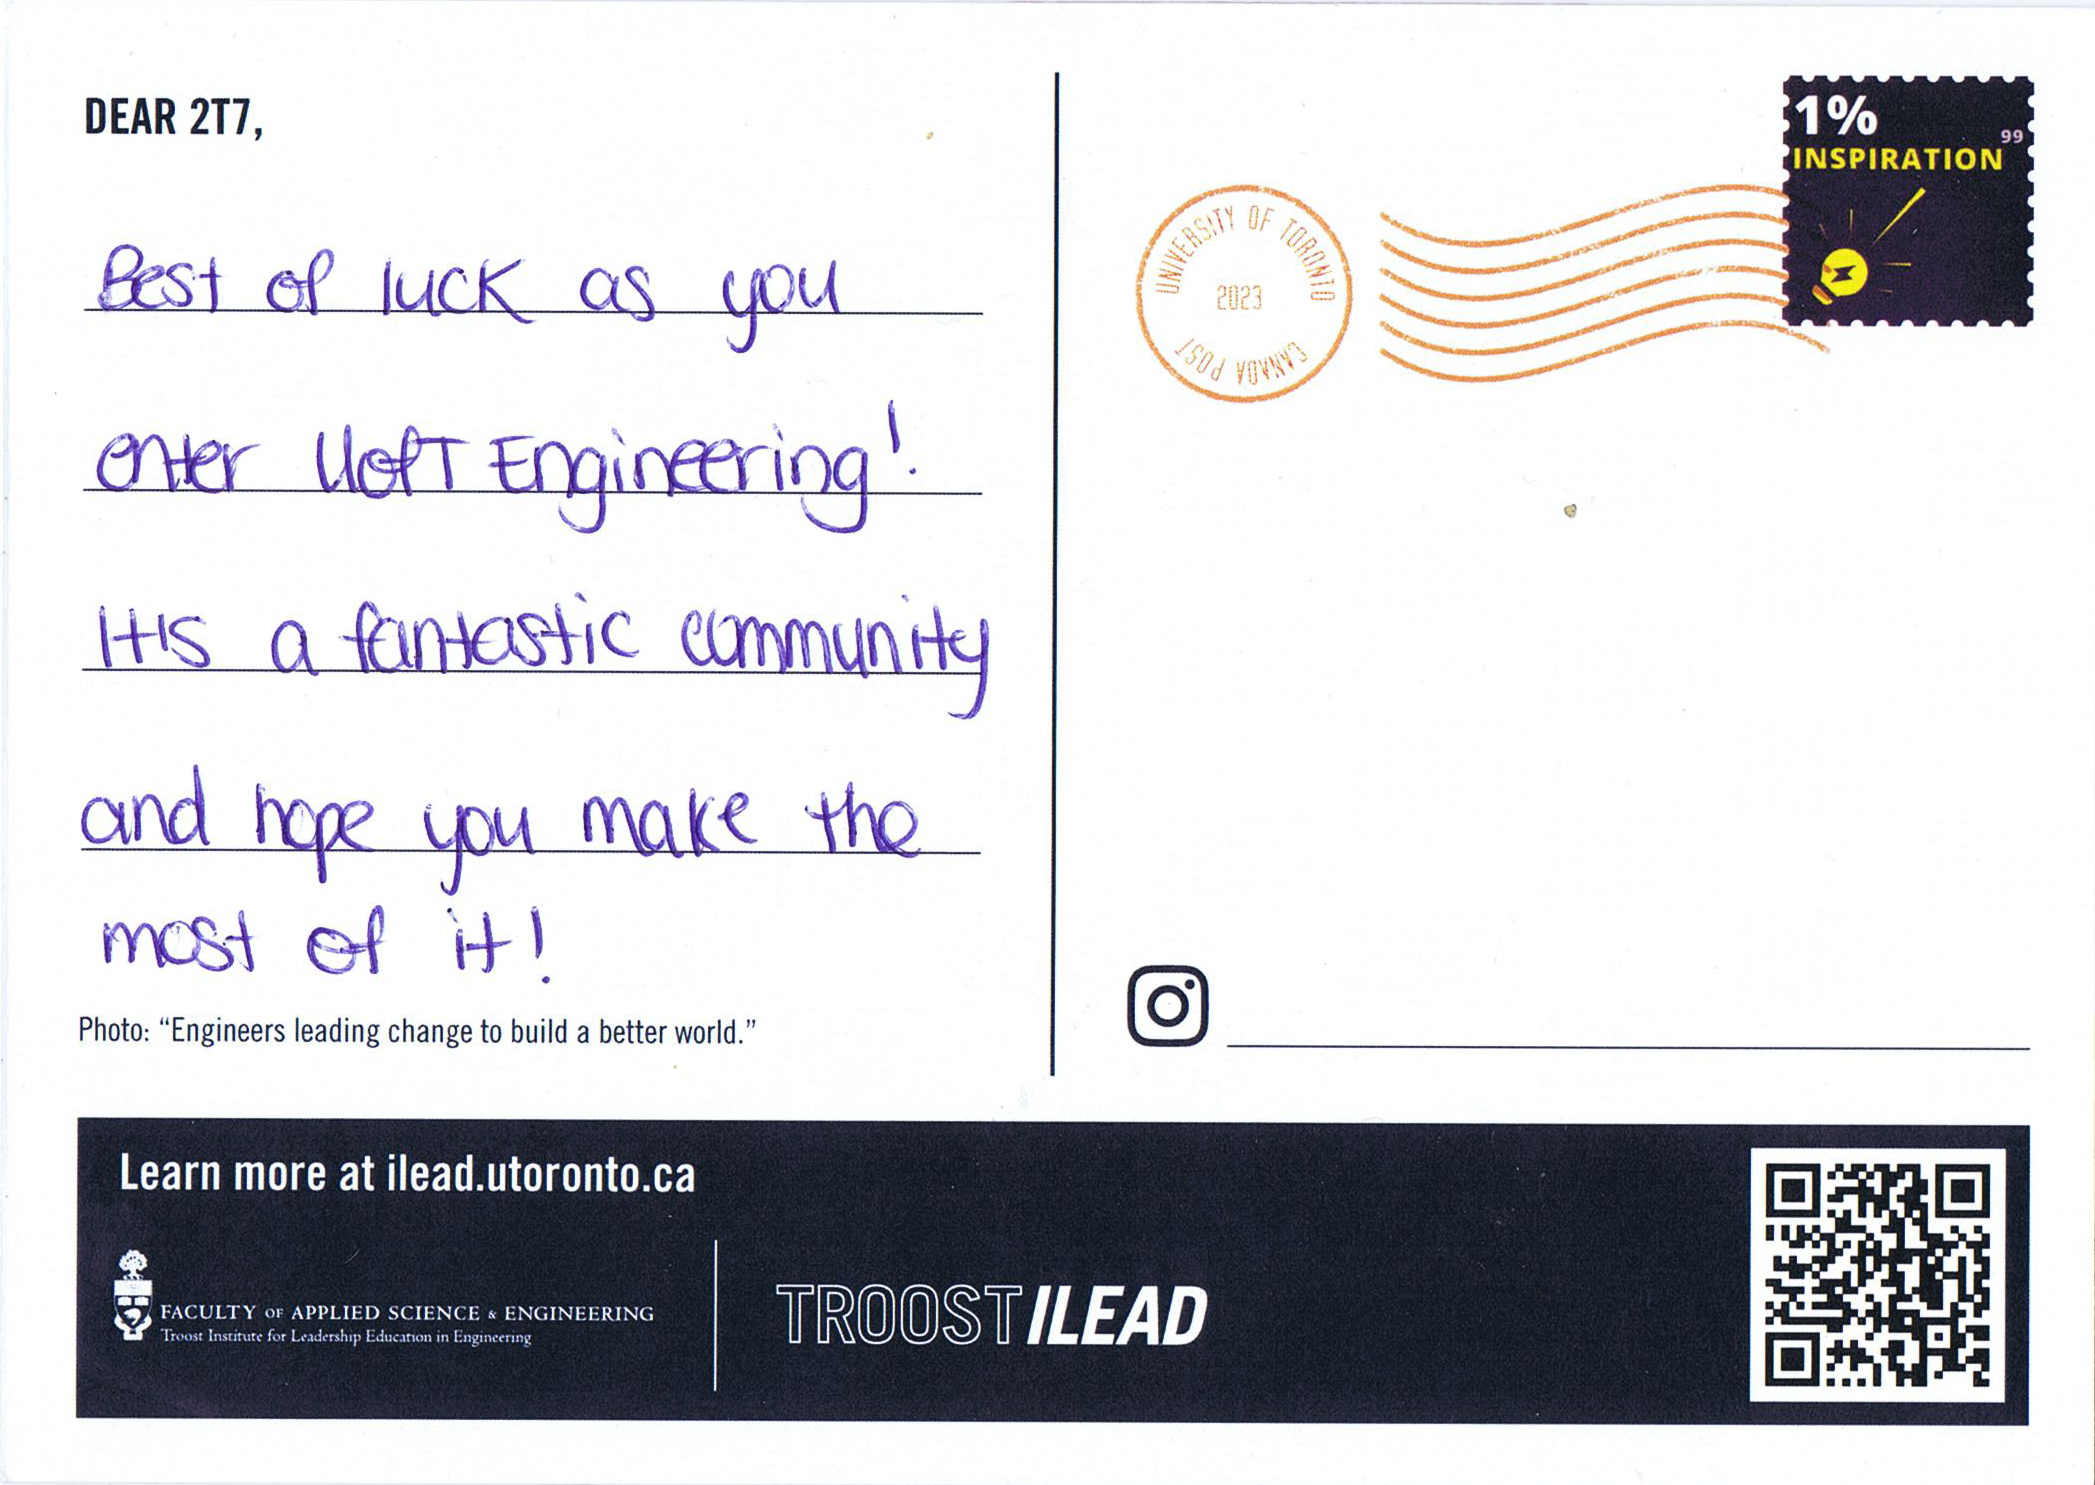 DEAR 2T7,
Best of luck as you
enter UofT Engineering!
It is a fantastic community
and hope you make the
most of it!
Photo: “Engineers leading change to build a better world.”
1%
99
INSPIRATION
UNIVERSITY OF TORONTO
2023
CANADA POST
Learn more at ilead.utoronto.ca
FACULTY OF APPLIED SCIENCE & ENGINEERING
Troost Institute for Leadership Education in Engineering
TROOST ILEAD